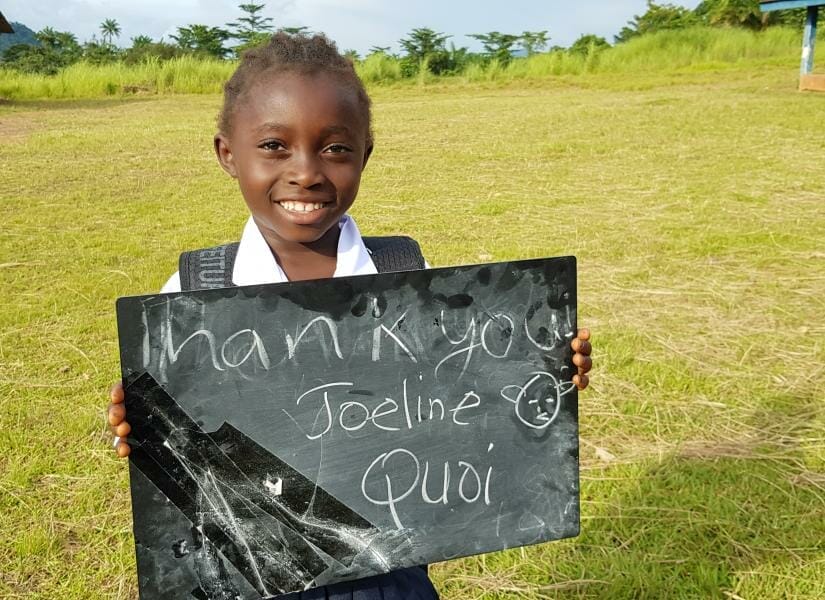 Thank you!
Joeline
Quoi